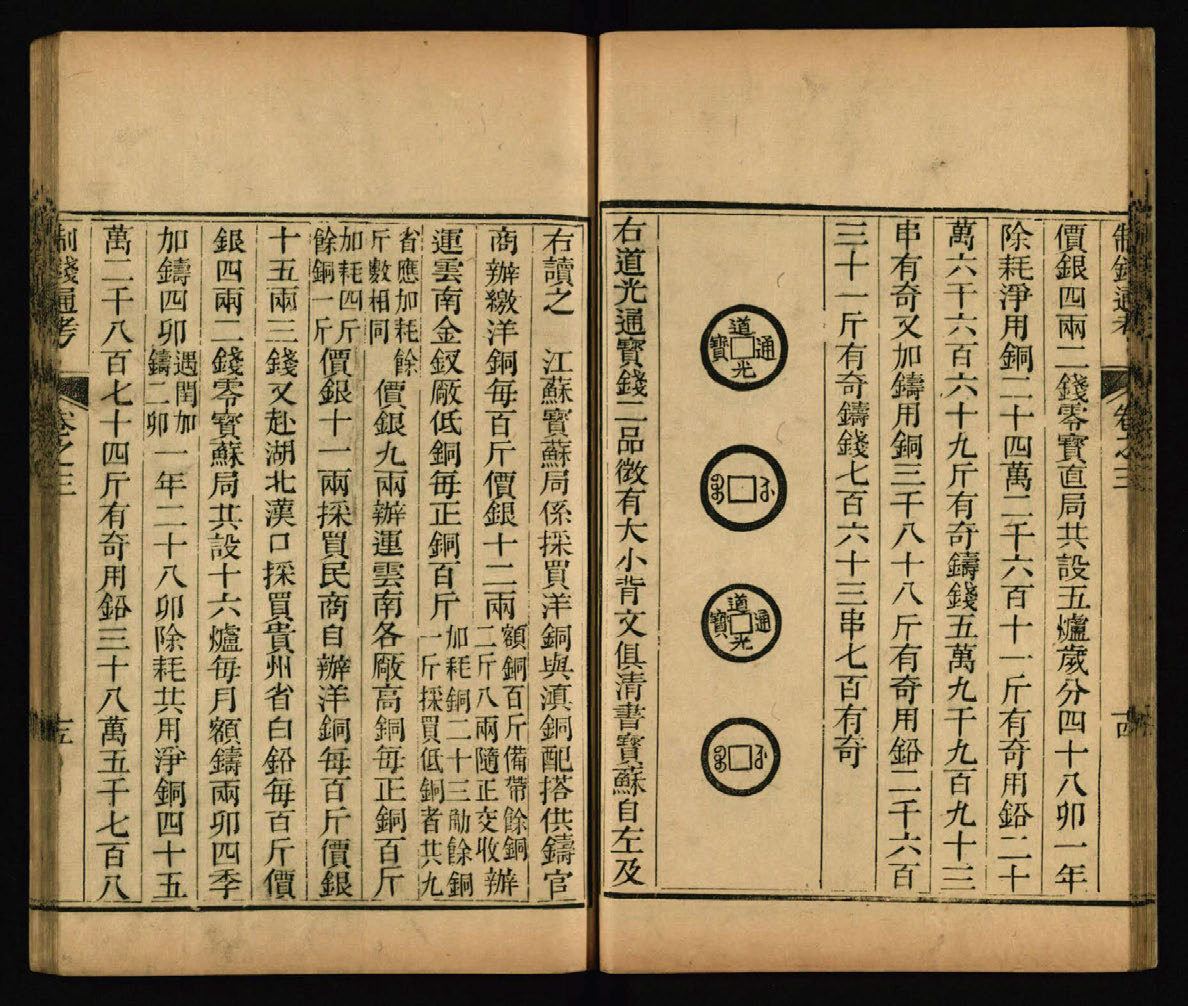 制錢通考
卷之三
價銀四兩二錢零寶直局共設五爐歲分四十八卯一年
除耗淨用銅二十四萬二千六百十一斤有奇用鉛二十
萬六千六百六十九斤有奇鑄錢五萬九千九百九十三
串有奇又加鑄用銅三千八十八斤有奇用鉛二千六百
三十一斤有奇鑄錢七百六十三串七百有奇
道光通寶
道光通寶
右道光通寶錢二品徴有大小背文俱清書寶蘇自左及
右讀之　江蘇寶蘇局係採買洋銅與滇銅配搭供鑄官
商辦繳洋銅每百斤價銀十二兩額銅百斤備帶餘銅
二斤八兩隨正交收辦
運雲南金釵厰低銅每正銅百斤加耗銅二十三觔餘銅
一斤採買低銅者共九
省應加耗餘
斤數相同價銀九兩辦運雲南各厰高銅每正銅百斤
加耗四斤
餘銅一斤價銀十一兩採買民商自辦洋銅每百斤價銀
十五兩三錢又赴湖北漢口採買貴州省白鉛每百斤價
銀四兩二錢零寶蘇局共設十六爐每月額鑄兩卯四季
加鑄四卯遇閏加
鑄二卯一年二十八卯除耗共用淨銅四十五
萬二千八百七十四斤有奇用鉛三十八萬五千七百八
制錢通考
卷之三